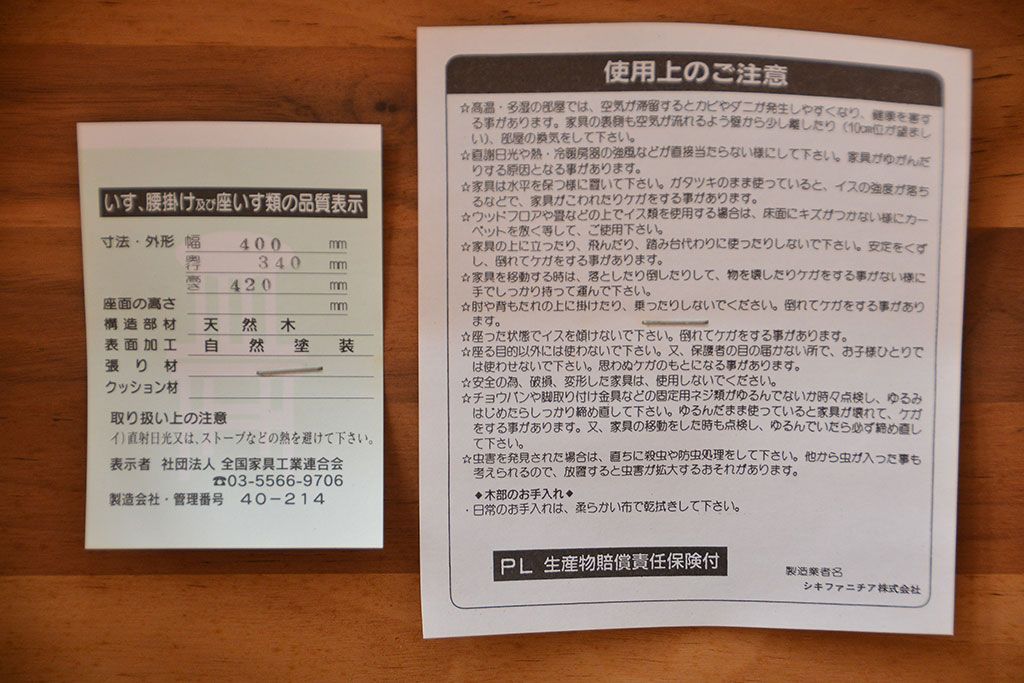 いす、腰掛け及び座いす類の品質表示
寸法・外形 幅 400 mm
奥行 340 mm
高さ 420 mm
座面の高さ mm
構造部材 天然木
表面加工 自然塗装
張り材
クッション材
取り扱い上の注意
イ)直射日光又は、ストーブなどの熱を避けて下さい。
表示者 社団法人 全国家具工業連合会
☎03-5566-9706
製造会社・管理番号 40-214
使用上のご注意
☆高温・多湿の部屋では、空気が滞留するとカビやダニが発生しやすくなり、健康を害す
る事があります。家具の裏側も空気が流れるよう壁から少し離したり(10cm位が望まし
い)、部屋の換気をして下さい。
☆直謝日光や熱・冷暖房器の強風などが直接当たらない様にして下さい。家具がゆがんだ
りする原因となる事があります。
☆家具は水平を保つ様に置いて下さい。ガタツキのまま使っていると、イスの強度が落ち
るなどで、家具がこわれたりケガをする事があります。
☆ウッドフロアや畳などの上でイス類を使用する場合は、床面にキズがつかない様にカー
ペットを敷く等して、ご使用下さい。
☆家具の上に立ったり、飛んだり、踏み台代わりに使ったりしないで下さい。安定をくず
し、倒れてケガをする事があります。
☆家具を移動する時は、落としたり倒したりして、物を壊したりケガをする事がない様に
手でしっかり持って運んで下さい。
☆肘や背もたれの上に掛けたり、乗ったりしないでください。倒れてケガをする事があり
ます。
☆座った状態でイスを傾けないで下さい。倒れてケガをする事があります。
☆座る目的以外には使わないで下さい。又、保護者の目の届かない所で、お子様ひとりで
は使わせないで下さい。思わぬケガのもとになる事があります。
☆安全の為、破損、変形した家具は、使用しないでください。
☆チョウバンや脚取り付け金具などの固定用ネジ類がゆるんでないか時々点検し、ゆるみ
はじめたらしっかり締め直して下さい。ゆるんだまま使っていると家具が壊れて、ケガ
をする事があります。又、家具の移動をした時も点検し、ゆるんでいたら必ず締め直し
て下さい。
☆虫害を発見された場合は、直ちに殺虫や防虫処理をして下さい。他から虫が入った事も
考えられるので、放置すると虫害が拡大するおそれがあります。
◆木部のお手入れ◆
・日常のお手入れは、柔らかい布で乾拭きして下さい。
PL 生産物賠償責任保険付
製造業者名
シキファニチア株式会社